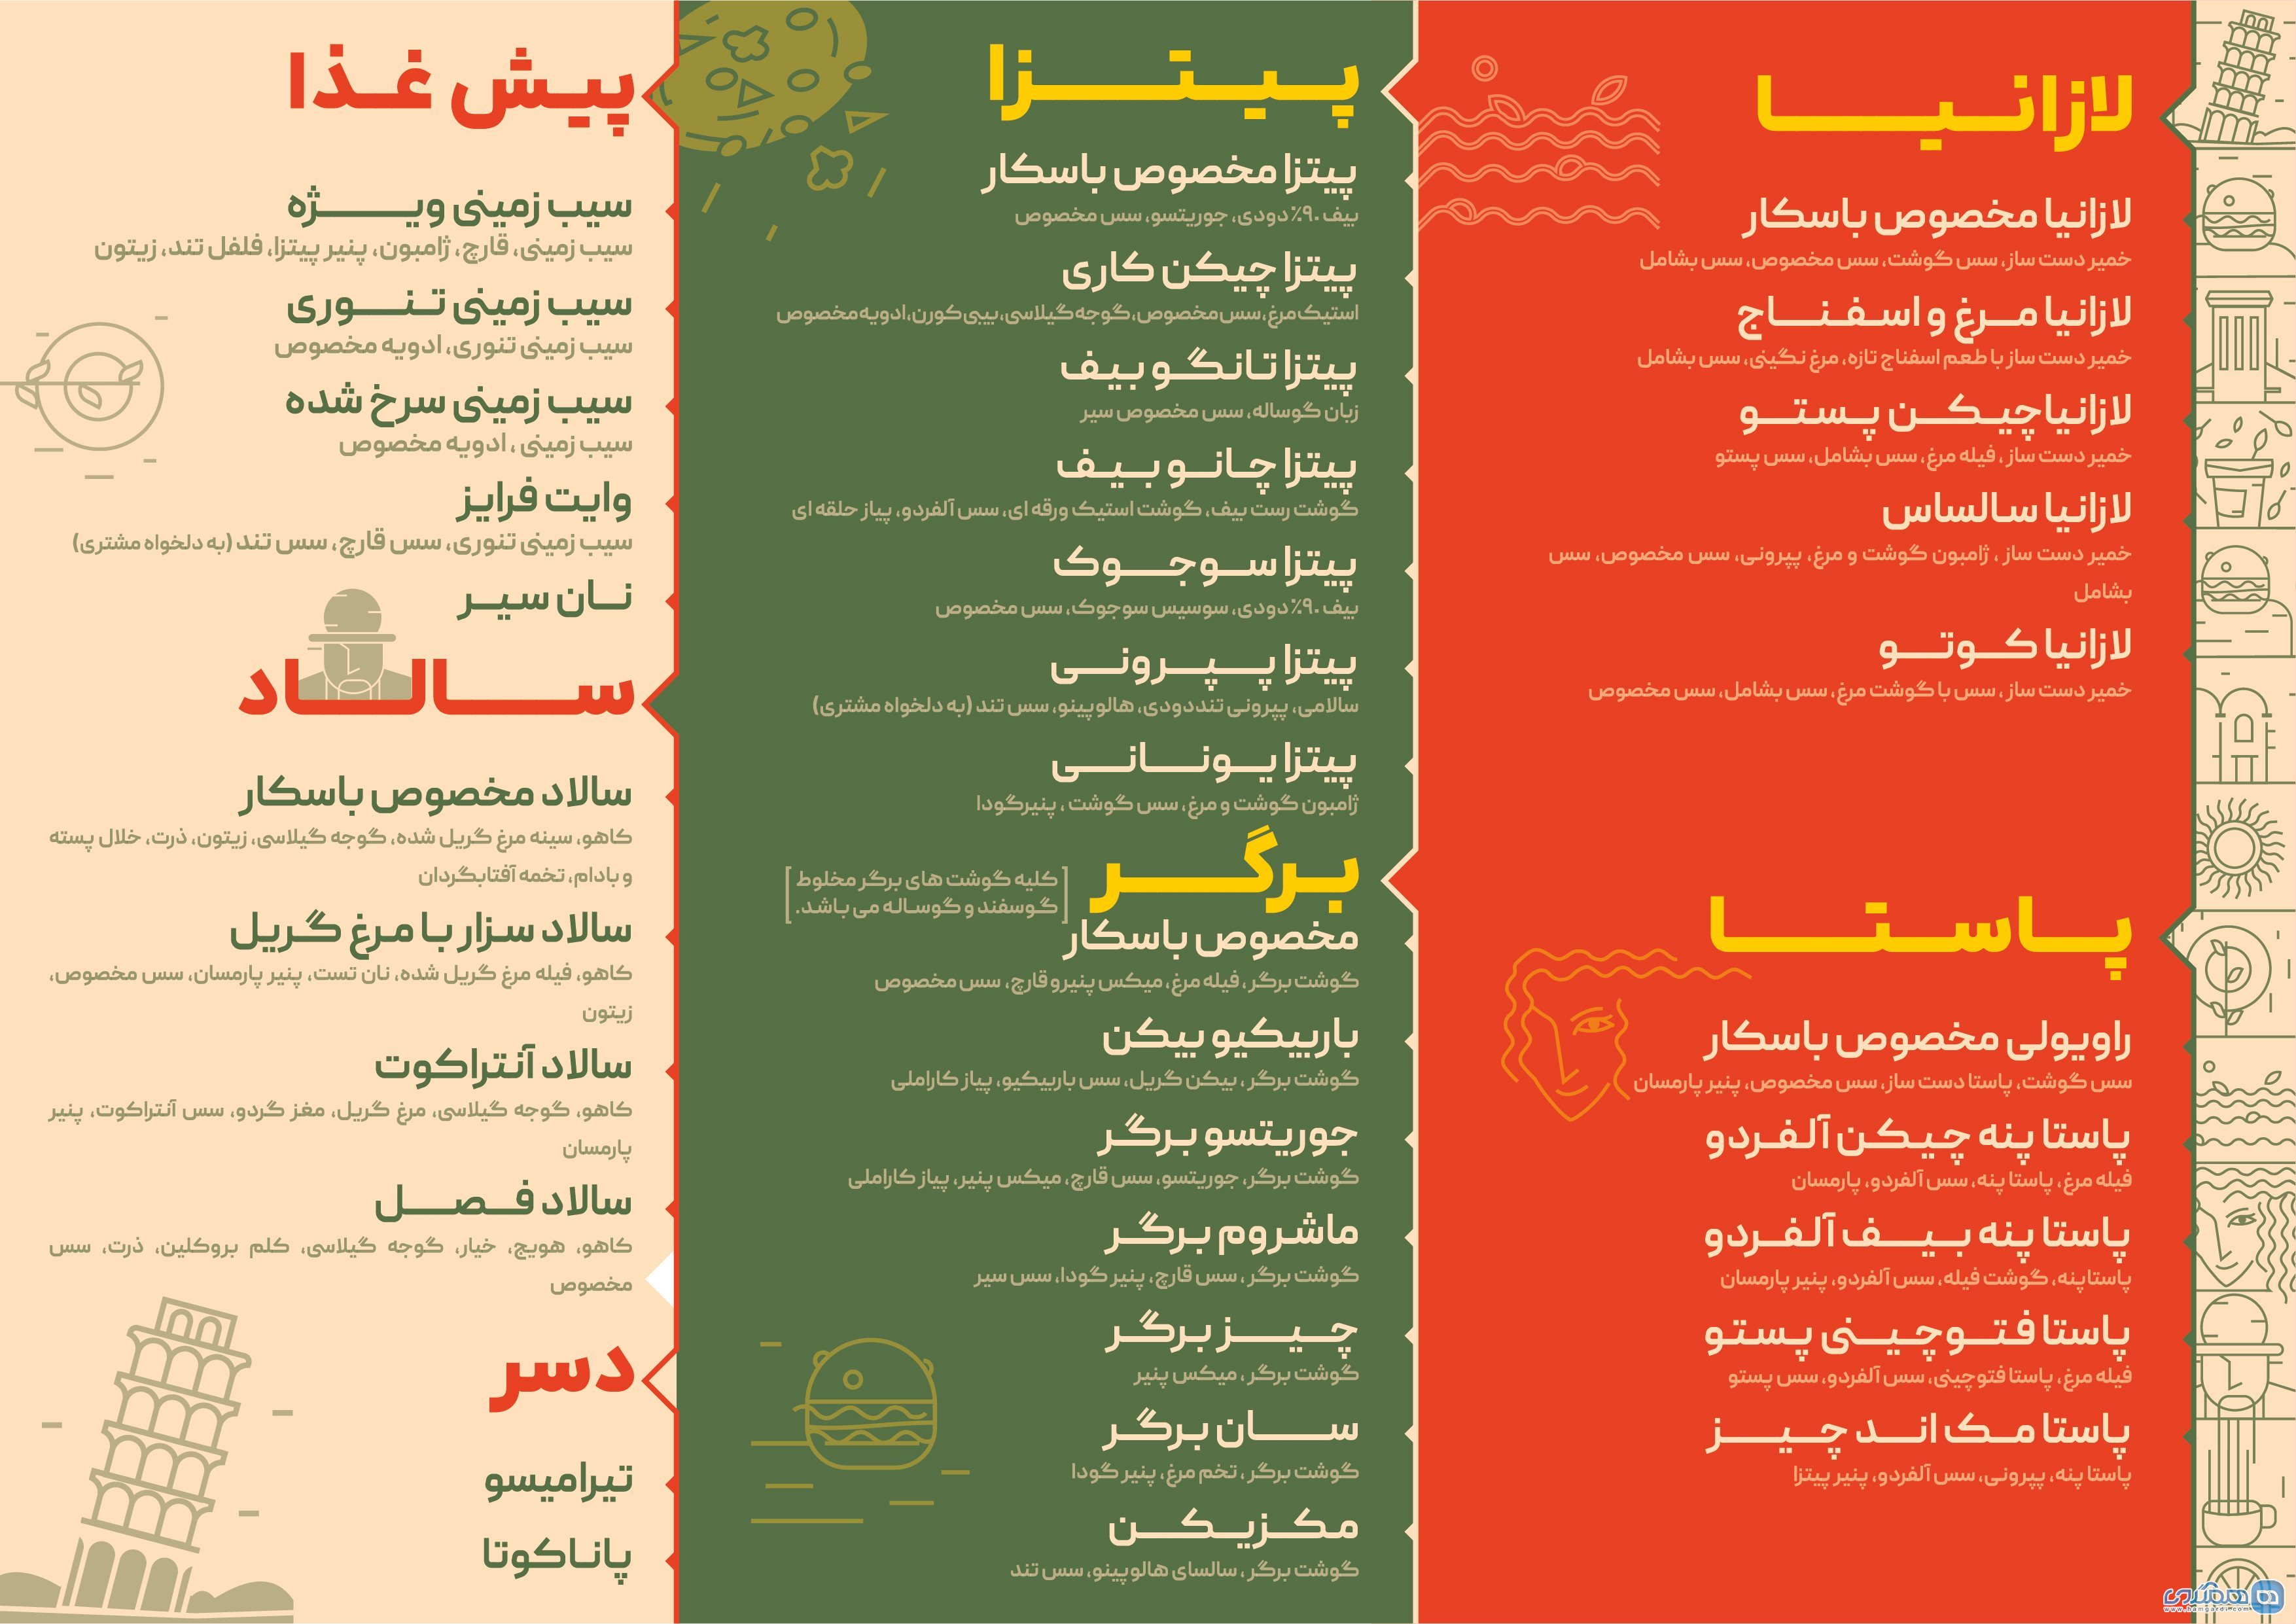 لازانیا
لازانیا مخصوص باسکار
خمیر دست ساز، سس گوشت، سس مخصوص، سس بشامل
لازانیا مرغ و اسفناج
خمیر دست ساز با طعم اسفناج تازه، مرغ نگینی، سس بشامل
لازانیا چیکن پستو
خمیر دست ساز ، فیله مرغ، سس بشامل، سس پستو
لازانیا سالساس
خمیر دست ساز ، ژامبون گوشت و مرغ، پپرونی، سس مخصوص، سس
بشامل
لازانیا کوتو
خمیر دست ساز ، سس با گوشت مرغ، سس بشامل، سس مخصوص
پاستا
راویولی مخصوص باسکار
سس گوشت، پاستا دست ساز، سس مخصوص، پنیر پارمسان
پاستا پنه چیکن آلفردو
فیله مرغ، پاستا پنه، سس آلفردو، پارمسان
پاستا پنه بیف آلفردو
پاستا پنه، گوشت فیله، سس آلفردو، پنیر پارمسان
پاستا فتوچینی پستو
فیله مرغ، پاستا فتوچینی، سس آلفردو، سس پستو
پاستا مک اند چیز
پاستا پنه، پپرونی، سس آلفردو، پنیر پیتزا
پیتزا
پیتزا مخصوص باسکار
بیف ۹۰٪ دودی، جوریتسو، سس مخصوص
پیتزا چیکن کاری
استیک مرغ، سس مخصوص، گوجه گیلاسی، بیبی کورن، ادویه مخصوص
پیتزا تانگو بیف
زبان گوساله، سس مخصوص سیر
پیتزا چانو بیف
گوشت رست بیف، گوشت استیک ورقه ای، سس آلفردو، پیاز حلقه ای
پیتزا سوجوک
بیف ۹۰٪ دودی، سوسیس سوجوک، سس مخصوص
پیتزا پپرونی
سالامی، پپرونی تند دودی، هالوپینو، سس تند (به دلخواه مشتری)
پیتزا یونانی
ژامبون گوشت و مرغ، سس گوشت ، پنیر گودا
برگر
[کلیه گوشت های برگر مخلوط
گوسفند و گوساله می باشد.]
مخصوص باسکار
گوشت برگر ، فیله مرغ، میکس پنیر و قارچ، سس مخصوص
باربیکیو بیکن
گوشت برگر ، بیکن گریل، سس باربیکیو، پیاز کاراملی
جوریتسو برگر
گوشت برگر، جوریتسو، سس قارچ، میکس پنیر، پیاز کاراملی
ماشروم برگر
گوشت برگر ، سس قارچ، پنیر گودا، سس سیر
چیز برگر
گوشت برگر ، میکس پنیر
سان برگر
گوشت برگر ، تخم مرغ، پنیر گودا
مکزیکن
گوشت برگر ، سالسای هالوپینو، سس تند
پیش غذا
سیب زمینی ویژه
سیب زمینی، قارچ، ژامبون، پنیر پیتزا، فلفل تند، زیتون
سیب زمینی تنوری
سیب زمینی تنوری، ادویه مخصوص
سیب زمینی سرخ شده
سیب زمینی ، ادویه مخصوص
وایت فرایز
سیب زمینی تنوری، سس قارچ، سس تند (به دلخواه مشتری)
نان سیر
سالاد
سالاد مخصوص باسکار
کاهو، سینه مرغ گریل شده، گوجه گیلاسی، زیتون، ذرت، خلال پسته
و بادام، تخمه آفتابگردان
سالاد سزار با مرغ گریل
کاهو، فیله مرغ گریل شده، نان تست، پنیر پارمسان، سس مخصوص،
زیتون
سالاد آنتراکوت
کاهو، گوجه گیلاسی، مرغ گریل، مغز گردو، سس آنتراکوت، پنیر
پارمسان
سالاد فصل
کاهو، هویج، خیار، گوجه گیلاسی، کلم بروکلین، ذرت، سس
مخصوص
دسر
تیرامیسو
پاناکوتا
همگردی
www.hamgardi.com